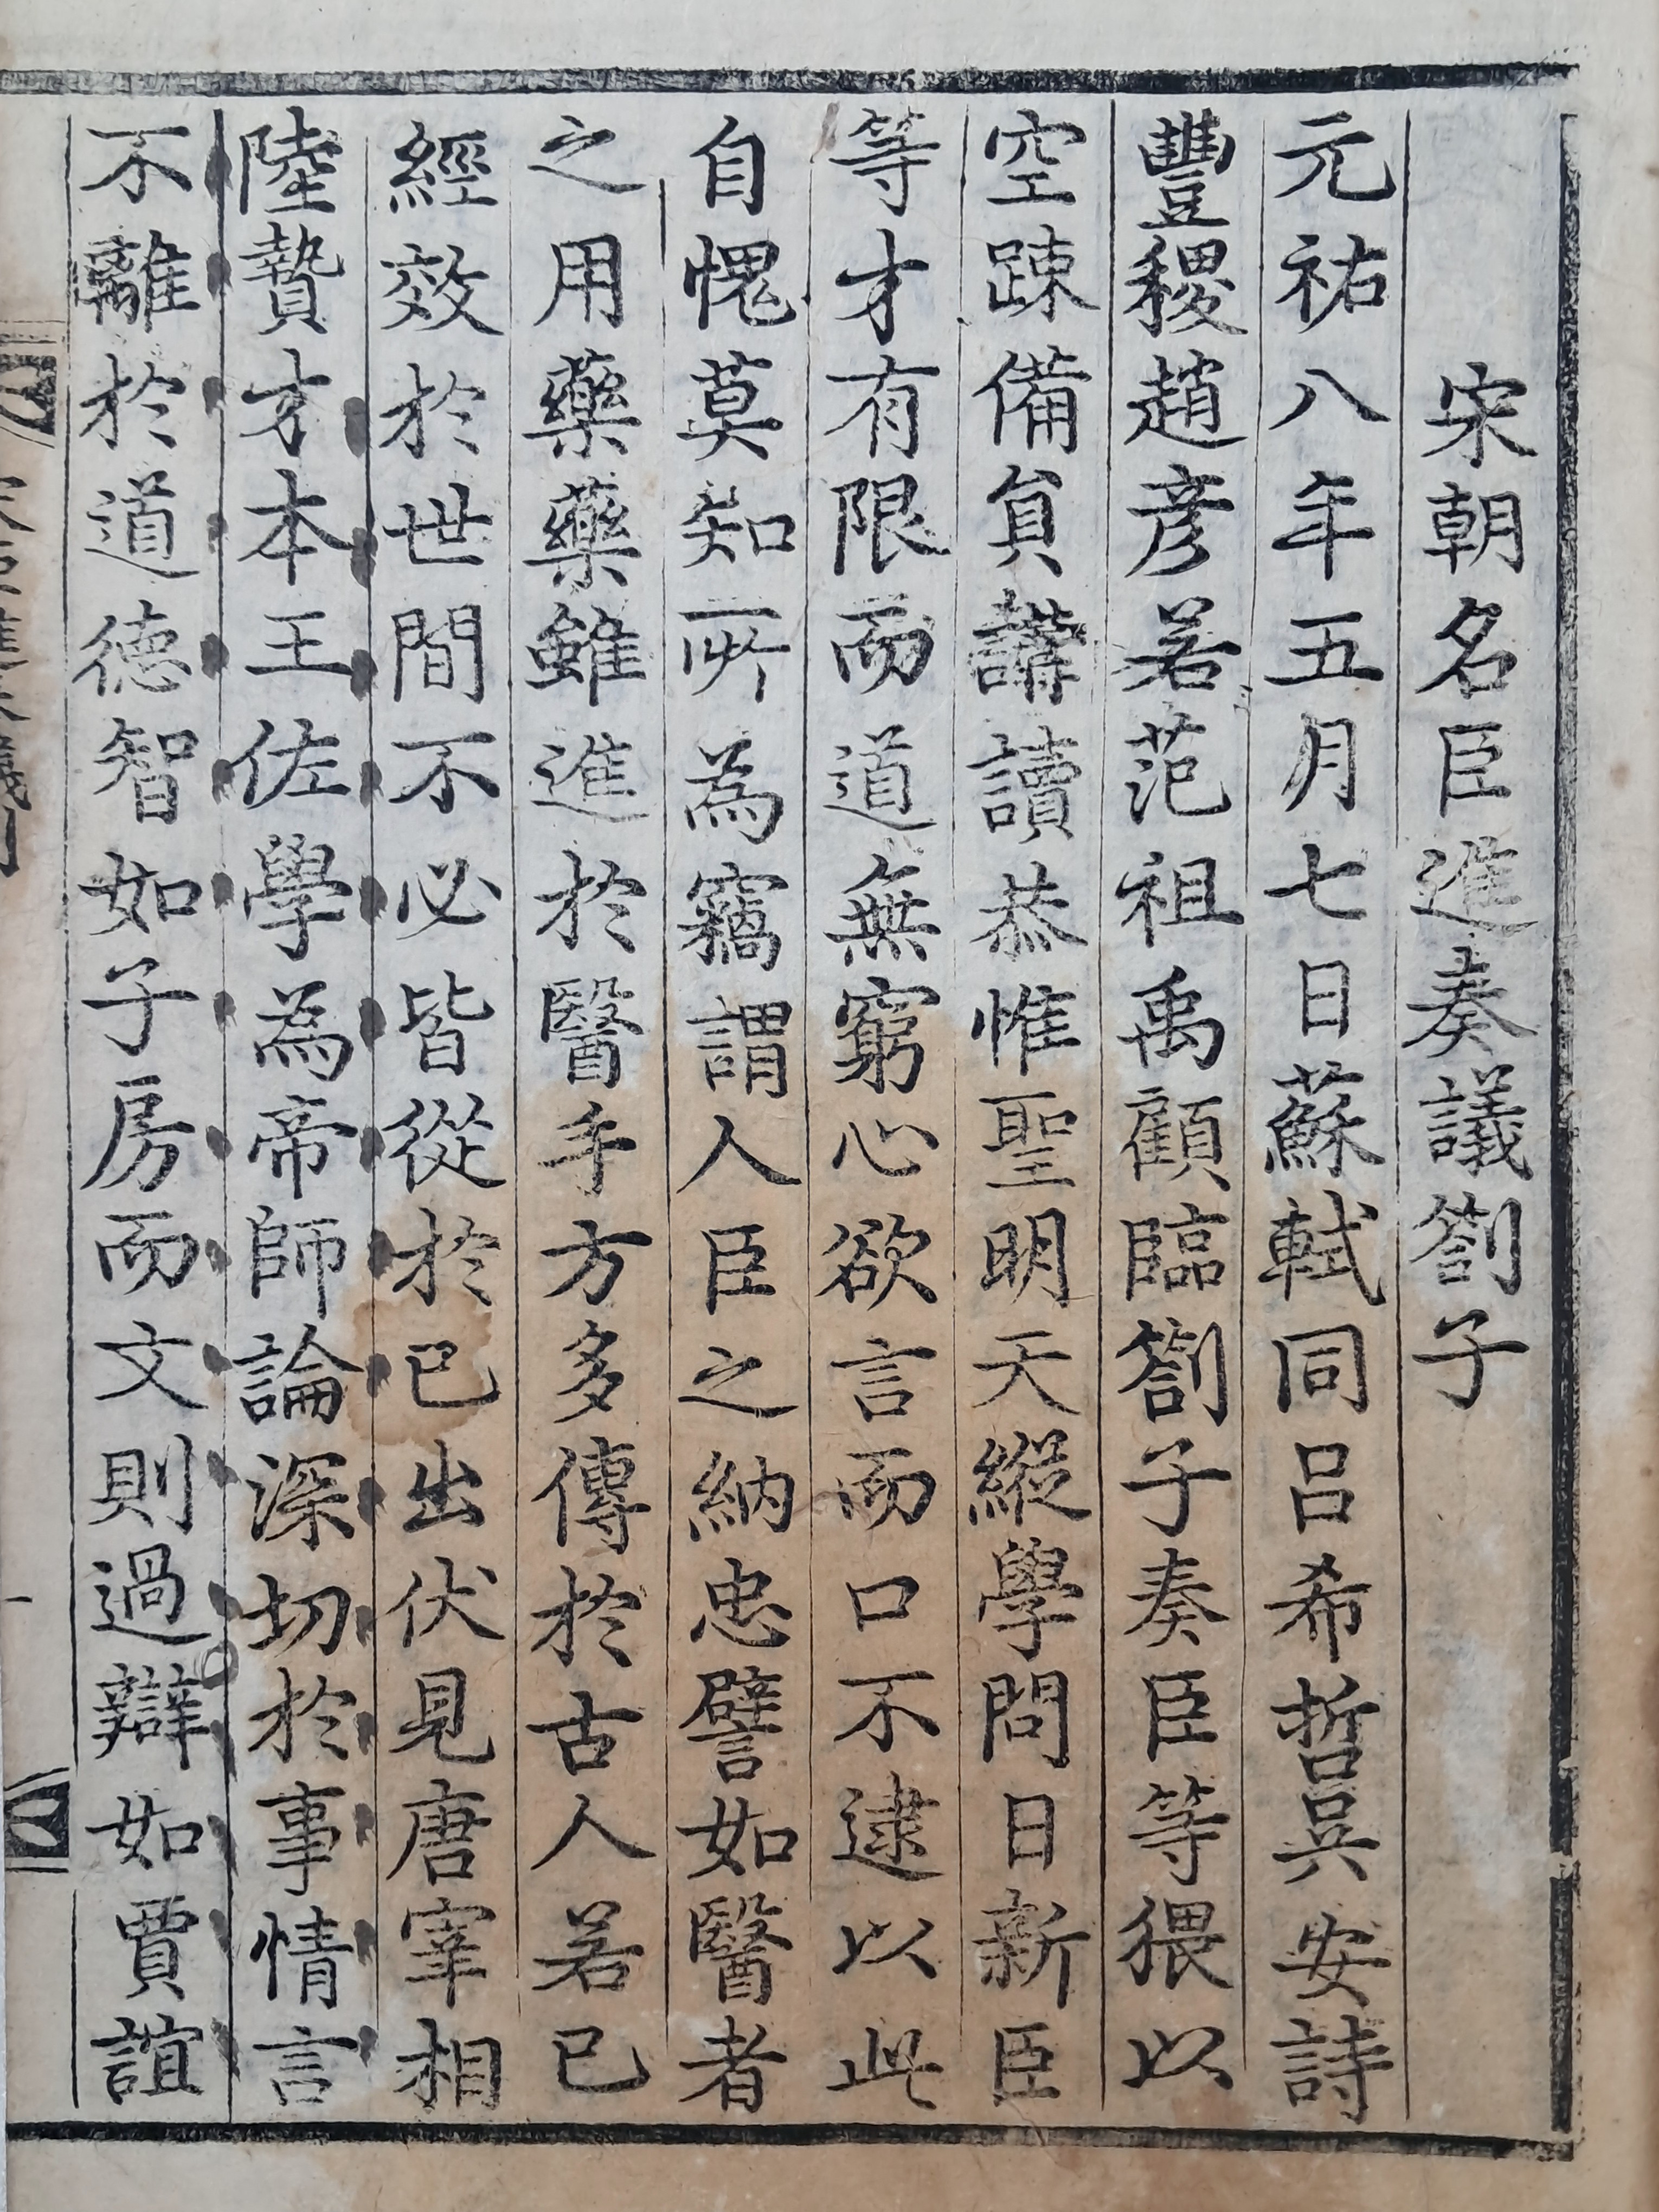 宋朝名臣進奏議劄子
元祐八年五月七日蘇軾同呂希哲吳安詩
豐稷趙彥若范祖禹顧臨劄子奏臣等猥以
空踈備貟講讀恭惟聖明天縱學問日新臣
等才有限而道無窮心欲言而口不逮以此
自愧莫知所為竊謂人臣之納忠譬如醫者
之用藥藥雖進於醫手方多傳於古人若已
經效於世間不必皆從於已出伏見唐宰相
陸贄才本王佐學為帝師論深切於事情言
不離於道德智如子房而文則過辯如賈誼